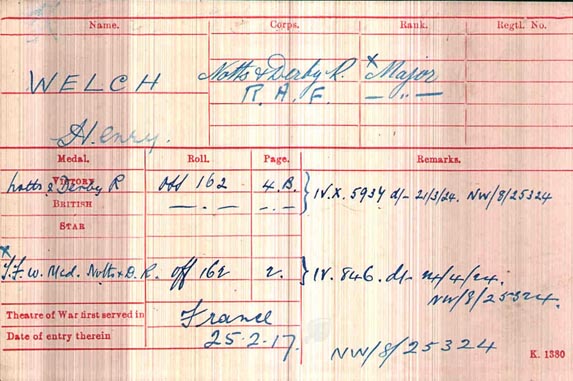 Name. Corps. Rank. Regtl. No.
WELCH Notts & Derby R. x Major
R. A. F. — " —
Henry.
Medal. Roll. Page. Remarks.
VICTORY Notts & Derby R Off 162 4.B. } IV.X. 5937 d/- 21/3/24. NW/8/25324
BRITISH — . — . — — . —
STAR
x T.F.W. Med. Notts & D. R. Off 162 2. } IV. 846. d/- 24/4/24.
NW/8/25324.
Theatre of War first served in France
Date of entry therein 25.2.17.
NW/8/25324 K. 1380